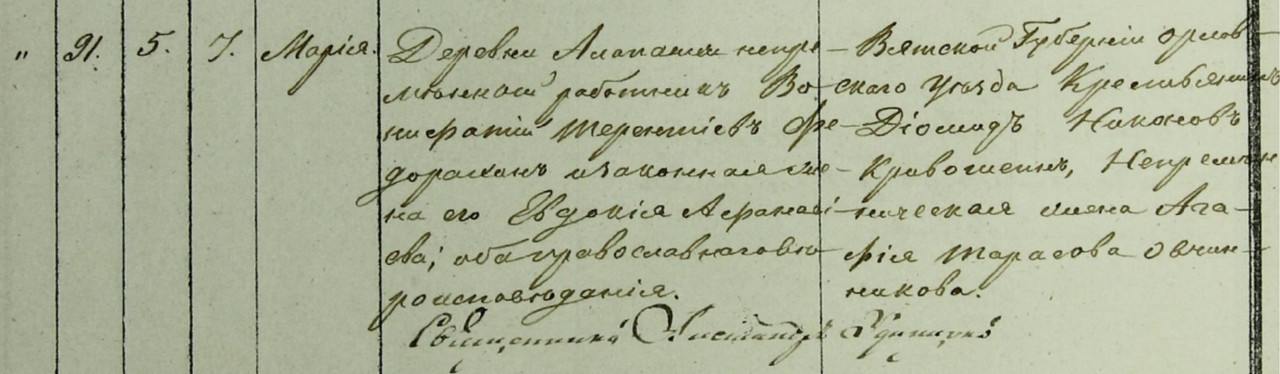 " 91. 5. 7. Марія.
Деревни Алапаихи непре-
мѣнный работникъ Во-
нифатій Терентіевъ Фе-
доракинъ и законная же-
на его Евдокія Афанасі-
ева; оба православнаго вѣ-
роисповѣданія.
Вятской Губерніи Орлов-
скаго Уѣзда Крестьянинъ
Діомидъ Никоновъ
Кривошеинъ, Непремѣн-
ническая жена Ага-
фія Тарасова Овчин-
никова.
Священникъ